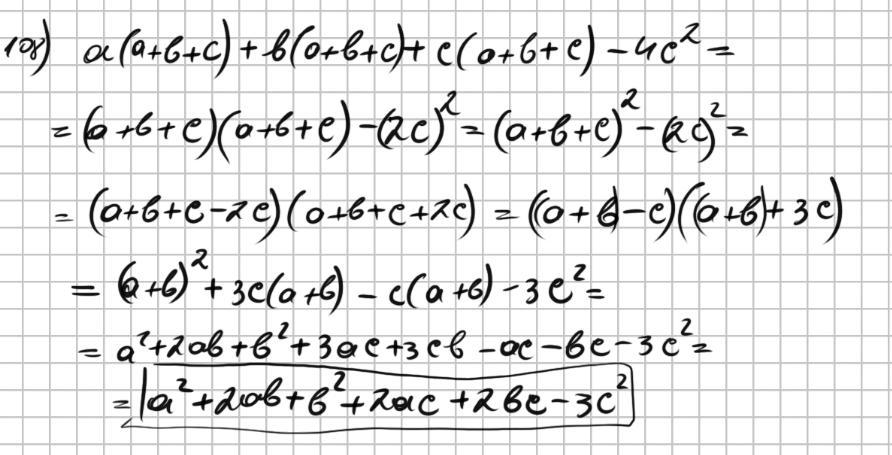 108) a(a+b+c)+b(a+b+c)+c(a+b+c)-4c²=
=(a+b+c)(a+b+c)-(2c)²=(a+b+c)²-(2c)²=
=(a+b+c-2c)(a+b+c+2c)=((a+b)-c)((a+b)+3c)
=(a+b)²+3c(a+b)-c(a+b)-3c²=
=a²+2ab+b²+3ac+3cb-ac-bc-3c²=
=a²+2ab+b²+2ac+2bc-3c²